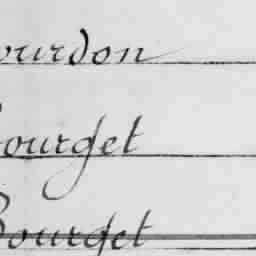 ourdon
ourget
Bourget